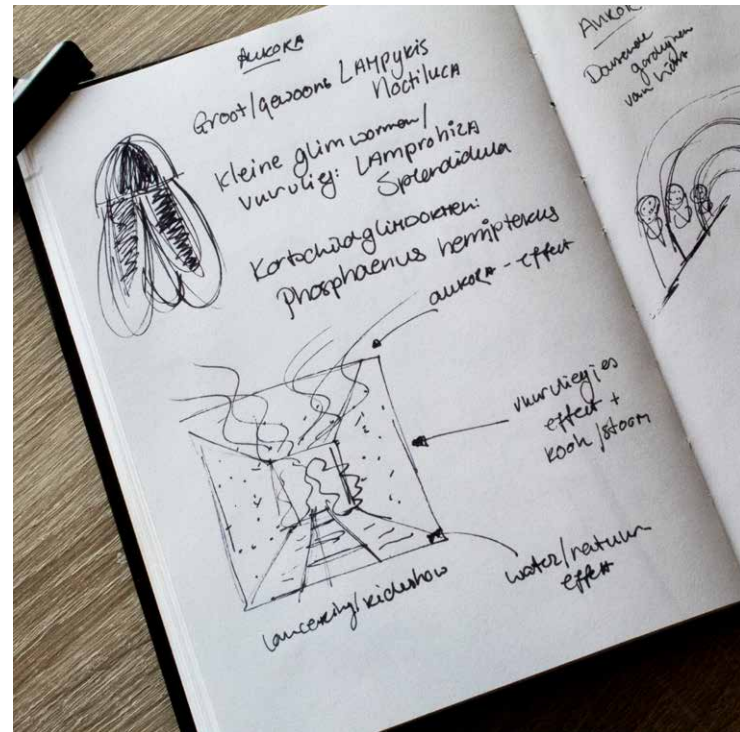 AURORA
Groot/gewoons LAMPYRIS
Noctiluca
kleine glimwormen/
vuurvlieg: LAmprohiza
Splendidula
Kortschildglimwormen:
Phosphaenus hemipterus
aurora - effect
vuurvliegjes
effect +
rook/stoom
water/natuur
effect
lancering/rideshow
AUROR
Dansende
gordijnen
van licht